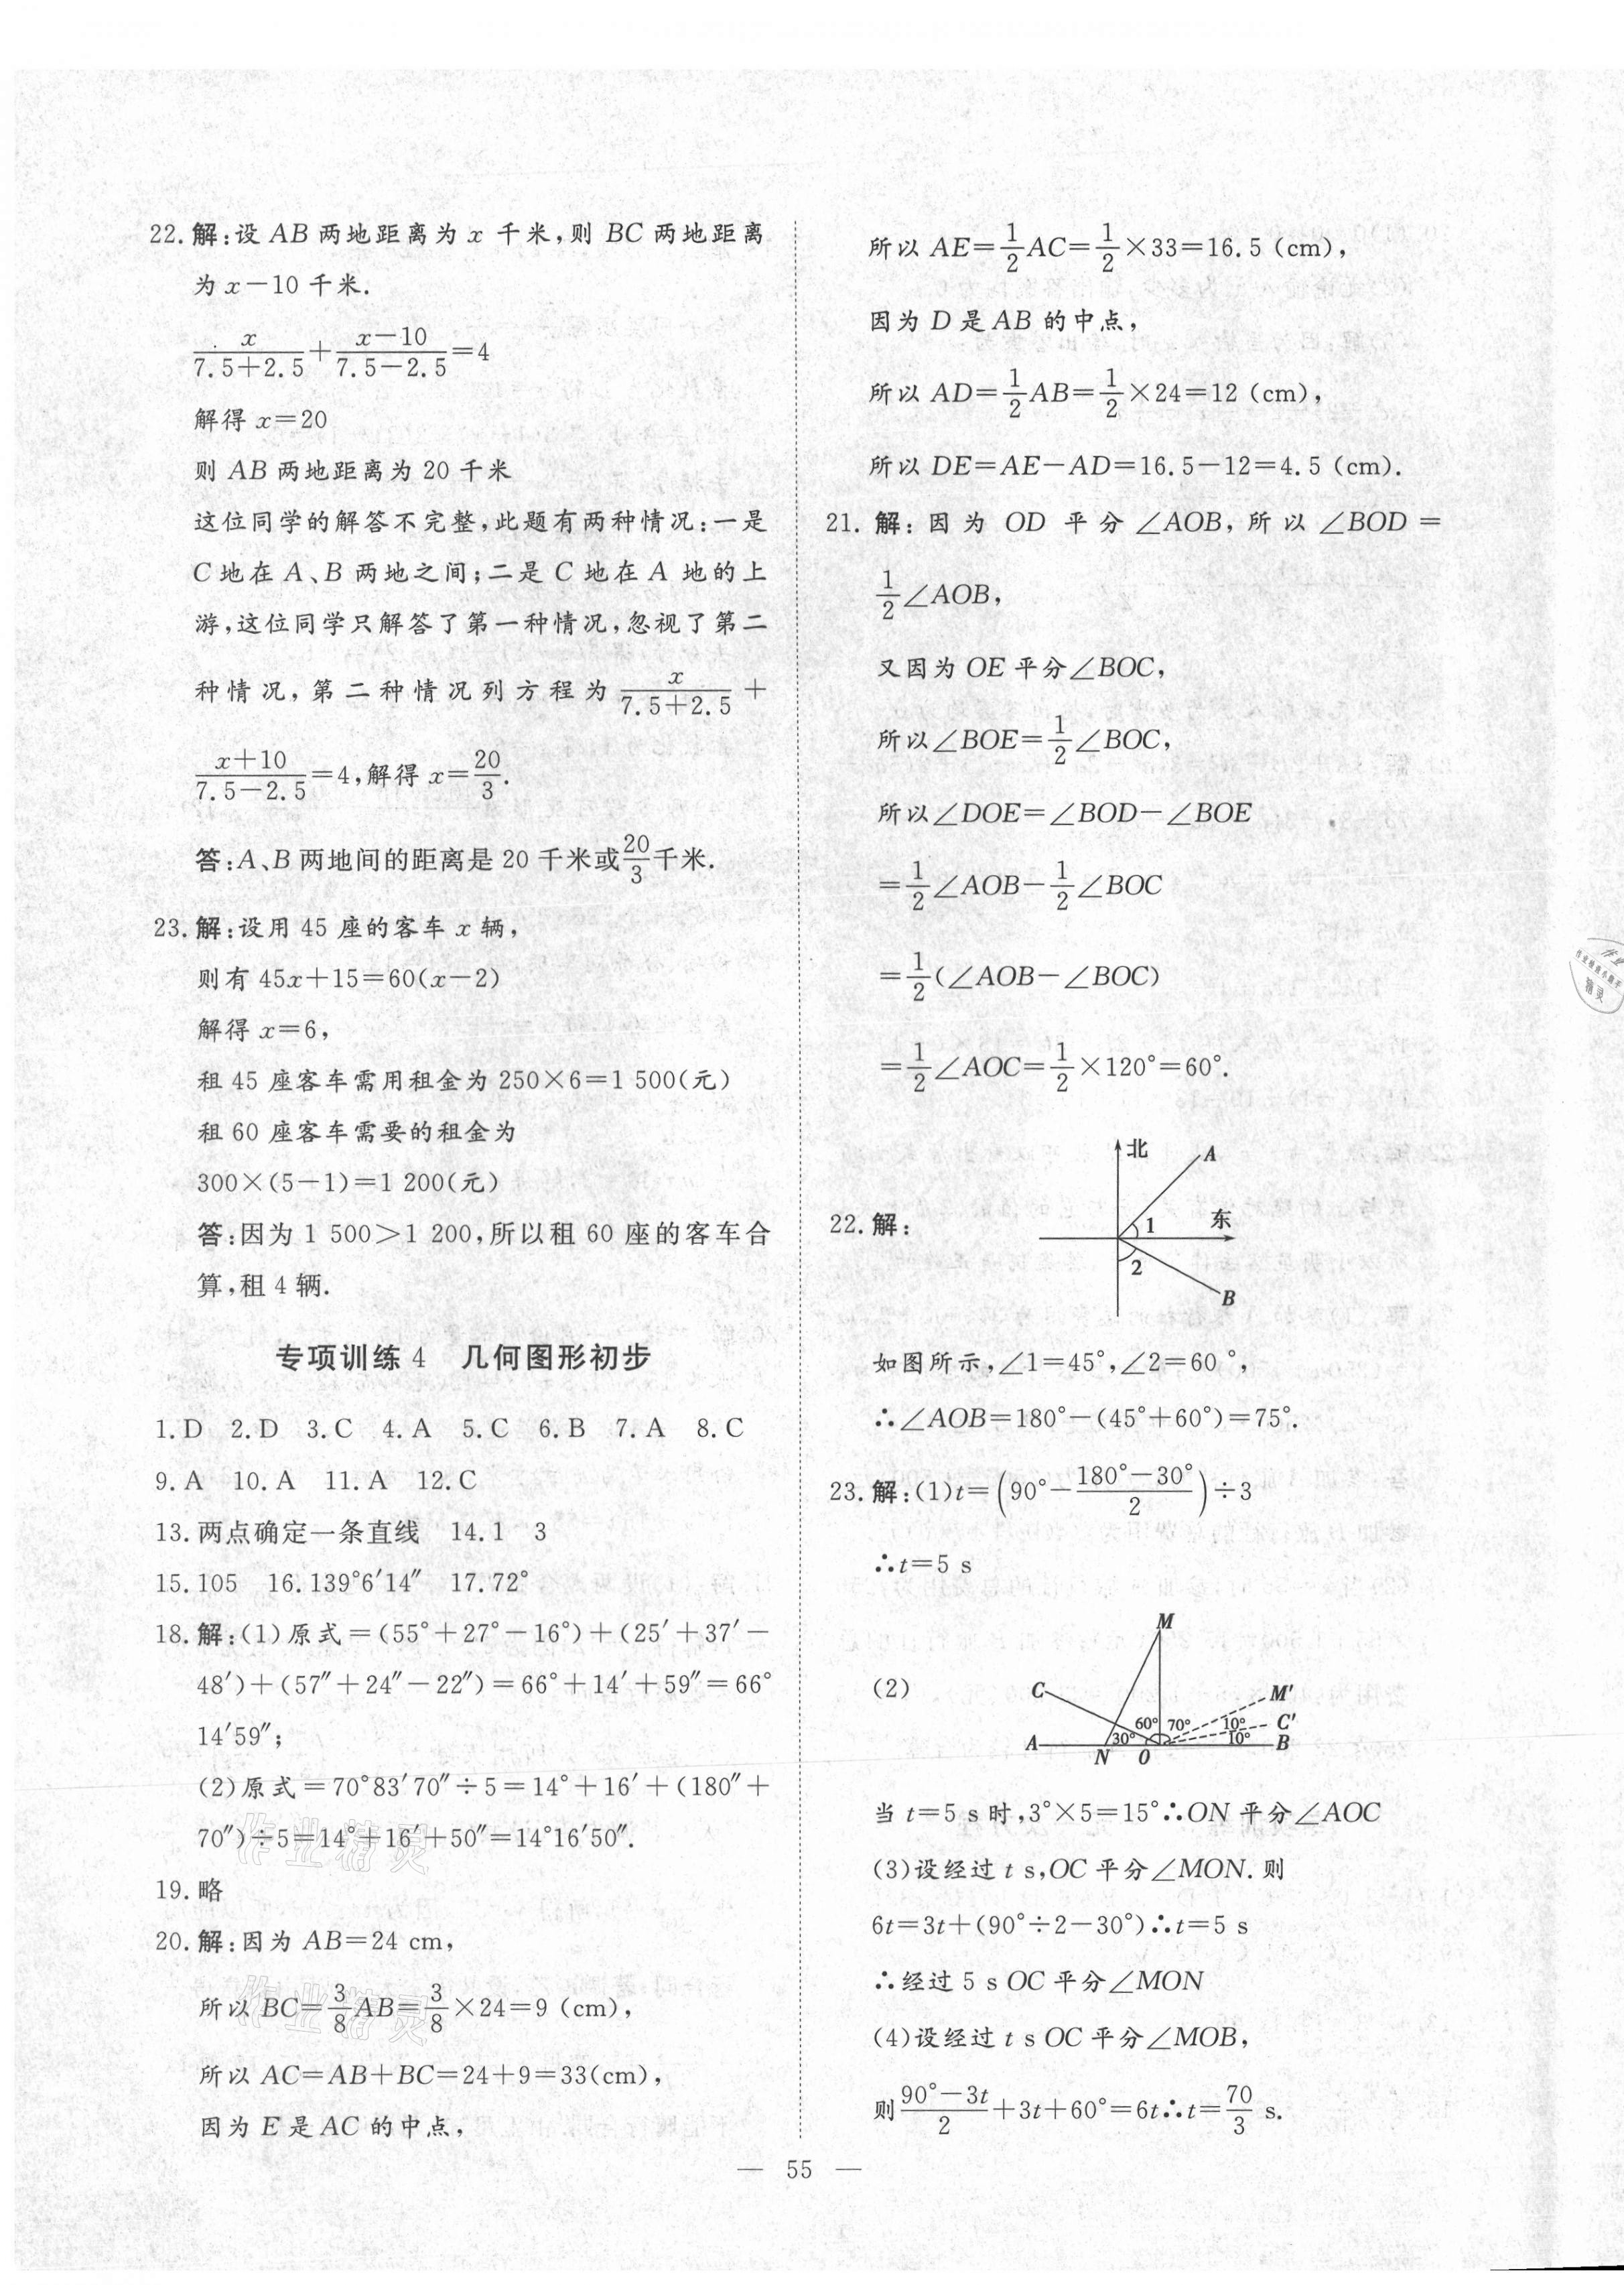 22. 解:设 AB 两地距离为 x 千米,则 BC 两地距离
为 x－10 千米.
x/(7.5＋2.5)＋(x－10)/(7.5－2.5)＝4
解得 x＝20
则 AB 两地距离为 20 千米
这位同学的解答不完整,此题有两种情况:一是
C 地在 A、B 两地之间;二是 C 地在 A 地的上
游,这位同学只解答了第一种情况,忽视了第二
种情况,第二种情况列方程为 x/(7.5＋2.5)＋
(x＋10)/(7.5－2.5)＝4,解得 x＝20/3.
答:A、B 两地间的距离是 20 千米或 20/3 千米.
23. 解:设用 45 座的客车 x 辆,
则有 45x＋15＝60(x－2)
解得 x＝6,
租 45 座客车需用租金为 250×6＝1 500(元)
租 60 座客车需要的租金为
300×(5－1)＝1 200(元)
答:因为 1 500＞1 200,所以租 60 座的客车合
算,租 4 辆.
专项训练 4 几何图形初步
1. D 2. D 3. C 4. A 5. C 6. B 7. A 8. C
9. A 10. A 11. A 12. C
13. 两点确定一条直线 14. 1 3
15. 105 16. 139°6′14″ 17. 72°
18. 解:(1)原式＝(55°＋27°－16°)＋(25′＋37′－
48′)＋(57″＋24″－22″)＝66°＋14′＋59″＝66°
14′59″;
(2)原式＝70°83′70″÷5＝14°＋16′＋(180″＋
70″)÷5＝14°＋16′＋50″＝14°16′50″.
19. 略
20. 解:因为 AB＝24 cm,
所以 BC＝3/8 AB＝3/8×24＝9 (cm),
所以 AC＝AB＋BC＝24＋9＝33(cm),
因为 E 是 AC 的中点,
所以 AE＝1/2 AC＝1/2×33＝16.5 (cm),
因为 D 是 AB 的中点,
所以 AD＝1/2 AB＝1/2×24＝12 (cm),
所以 DE＝AE－AD＝16.5－12＝4.5 (cm).
21. 解: 因为 OD 平分 ∠AOB, 所以 ∠BOD＝
1/2∠AOB,
又因为 OE 平分∠BOC,
所以∠BOE＝1/2∠BOC,
所以∠DOE＝∠BOD－∠BOE
＝1/2∠AOB－1/2∠BOC
＝1/2(∠AOB－∠BOC)
＝1/2∠AOC＝1/2×120°＝60°.
22. 解:
北
A
1
东
2
B
如图所示,∠1＝45°,∠2＝60 °,
∴∠AOB＝180°－(45°＋60°)＝75°.
23. 解:(1)t＝(90°－(180°－30°)/2)÷3
∴t＝5 s
(2)
M
C
M′
60° 70° 10° C′
A 30° 10° B
N O
当 t＝5 s 时,3°×5＝15°∴ON 平分∠AOC
(3)设经过 t s,OC 平分∠MON. 则
6t＝3t＋(90°÷2－30°)∴t＝5 s
∴经过 5 s OC 平分∠MON
(4)设经过 t s OC 平分∠MOB,
则 (90°－3t)/2＋3t＋60°＝6t∴t＝70/3 s.
— 55 —
作业精灵
作业精灵